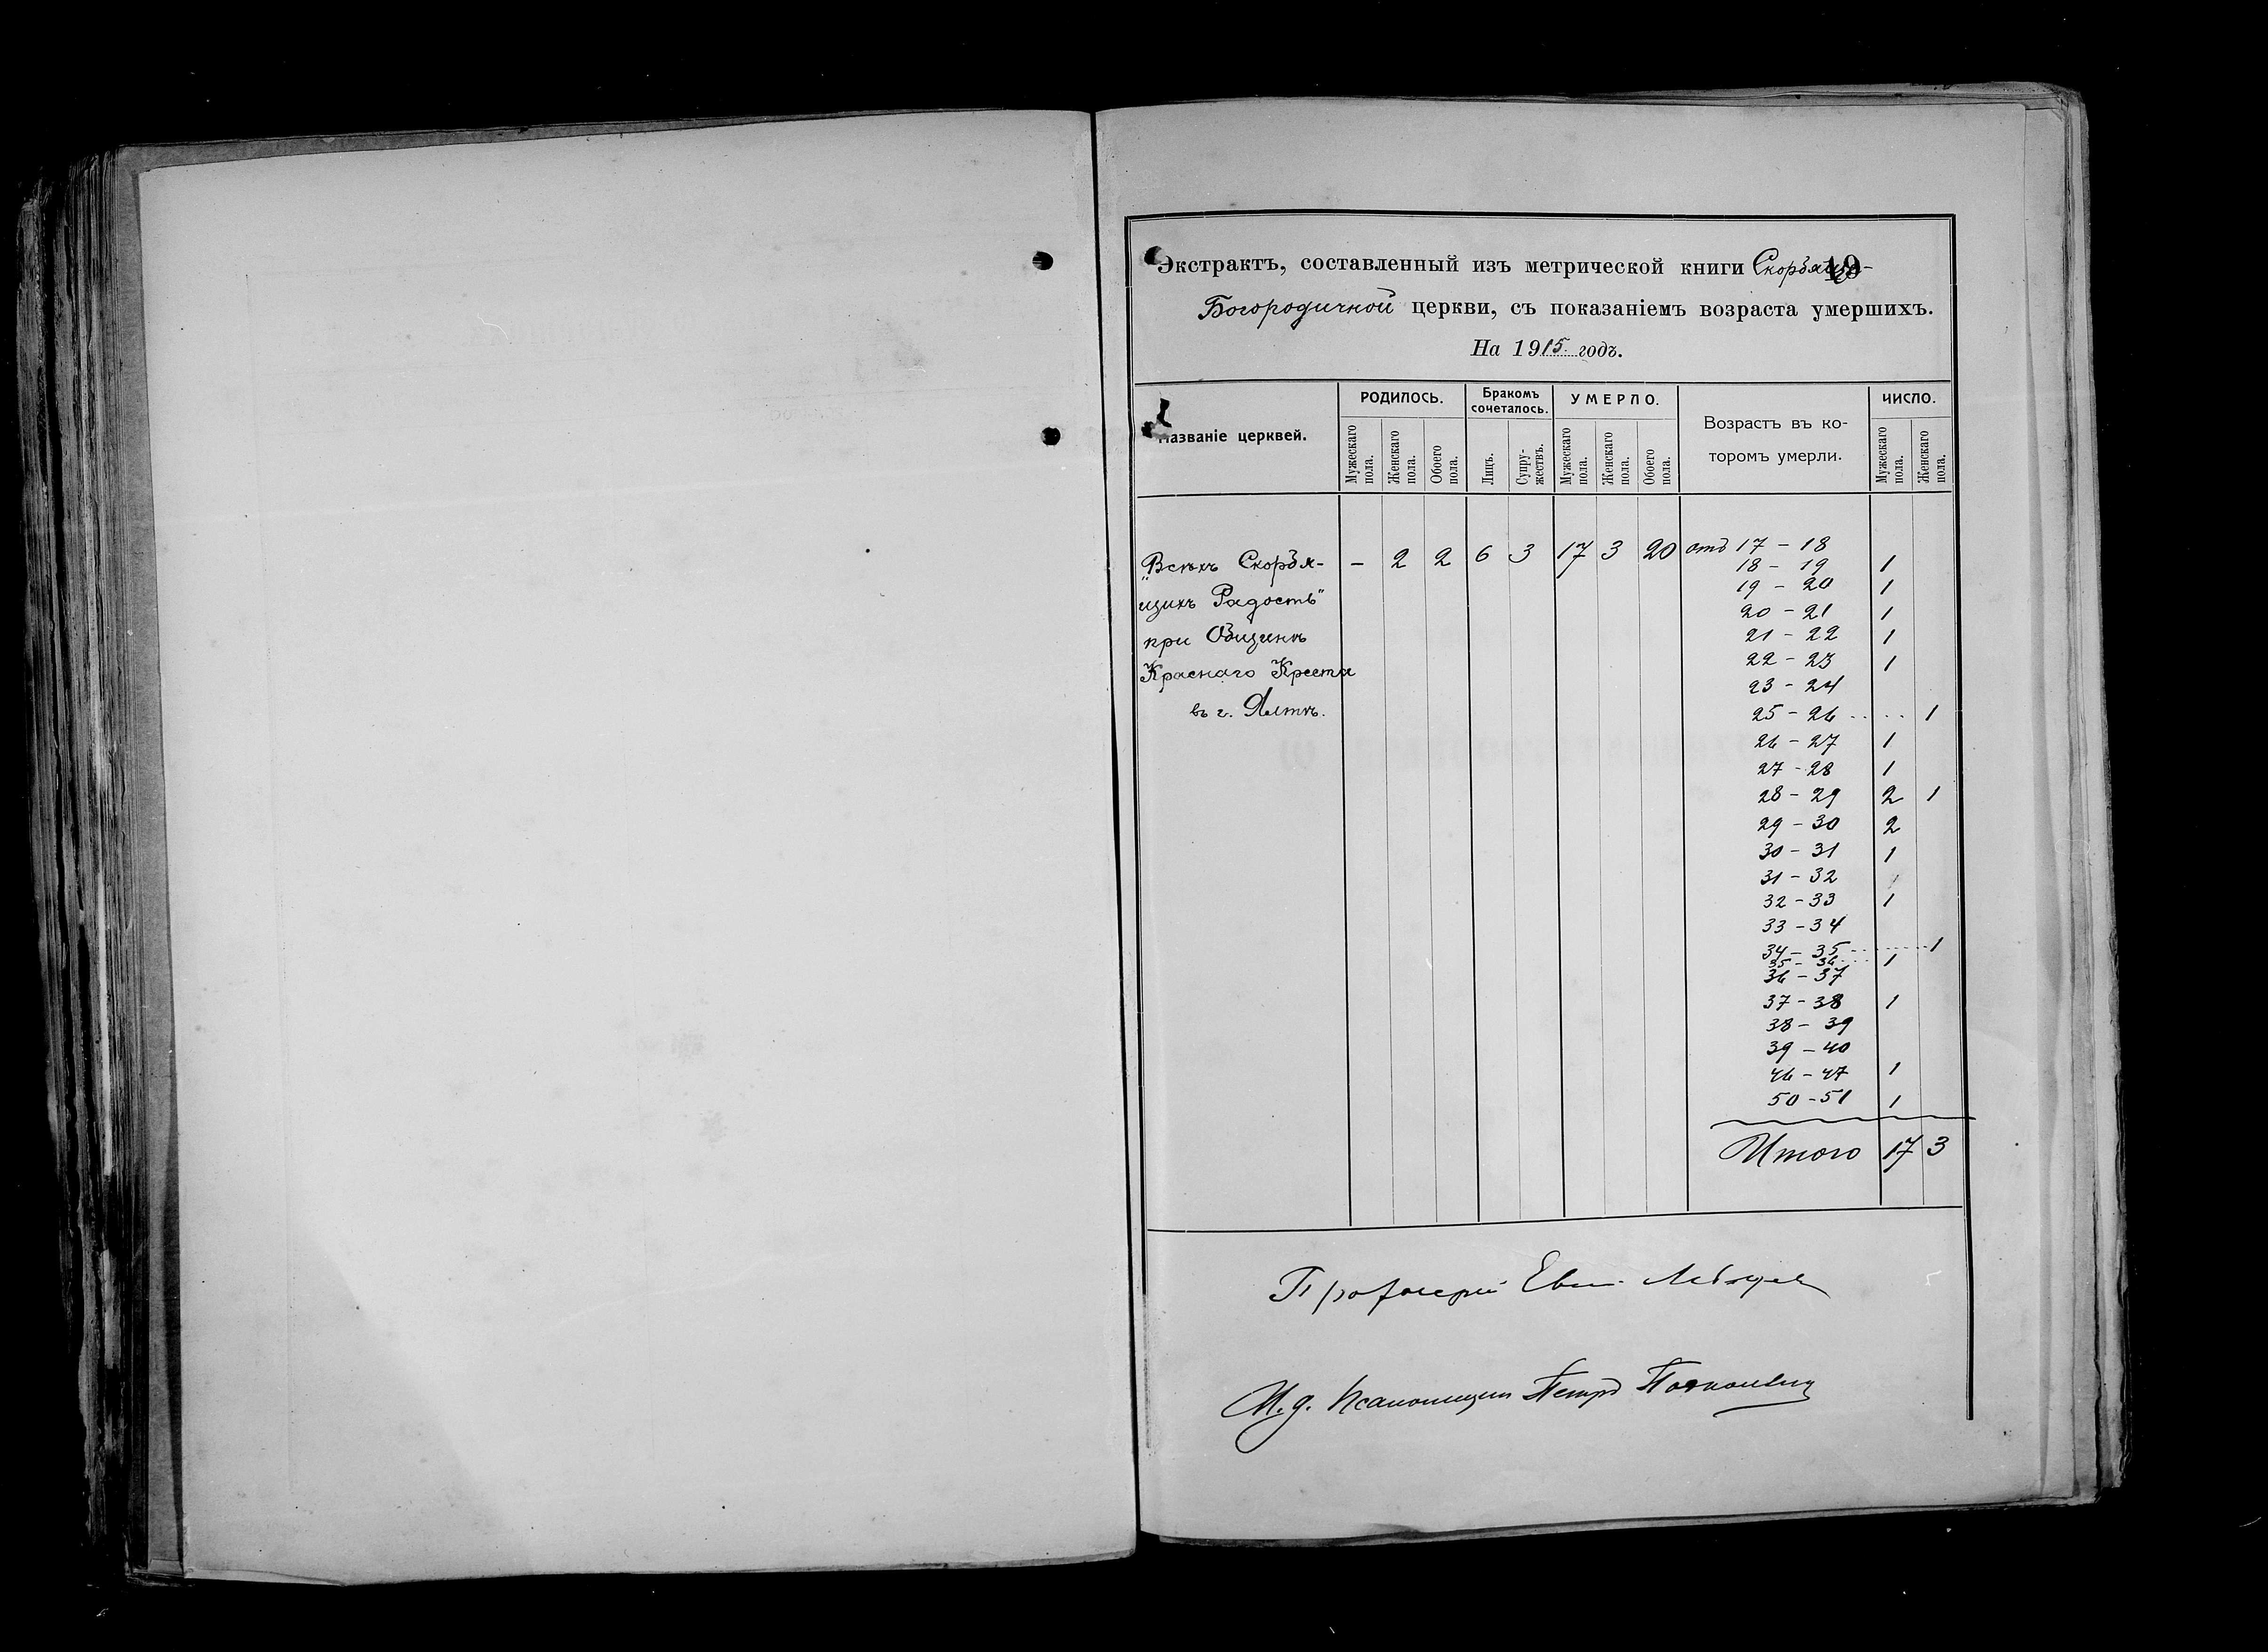 19
Экстрактъ, составленный изъ метрической книги Скорбяще-
Богородичной церкви, съ показаніемъ возраста умершихъ.
На 1915 годъ.
Названіе церквей.
РОДИЛОСЬ.
Мужескаго пола.
Женскаго пола.
Обоего пола.
Бракомъ сочеталось.
Лицъ.
Супружествъ.
УМЕРЛО.
Мужескаго пола.
Женскаго пола.
Обоего пола.
Возрастъ въ ко-
торомъ умерли.
ЧИСЛО.
Мужескаго пола.
Женскаго пола.
„Всѣхъ Скорбя- – 2 2 6 3 17 3 20
щихъ Радость"
при Общинѣ
Краснаго Креста
въ г. Ялтѣ.
отъ 17 – 18
18 – 19 1
19 – 20 1
20 – 21 1
21 – 22 1
22 – 23 1
23 – 24
25 – 26 1
26 – 27 1
27 – 28 1
28 – 29 2 1
29 – 30 2
30 – 31 1
31 – 32
32 – 33 1
33 – 34
34 – 35 1
35 – 36 1
36 – 37
37 – 38 1
38 – 39
39 – 40
46 – 47 1
50 – 51 1
Итого 17 3
Протоіерей Евг.
И.д. Псаломщик Петръ